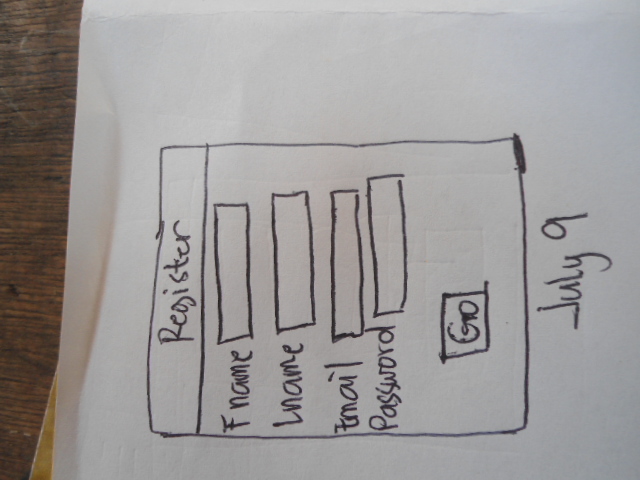 Register
Fname
Lname
Email
Password
Go
July 9